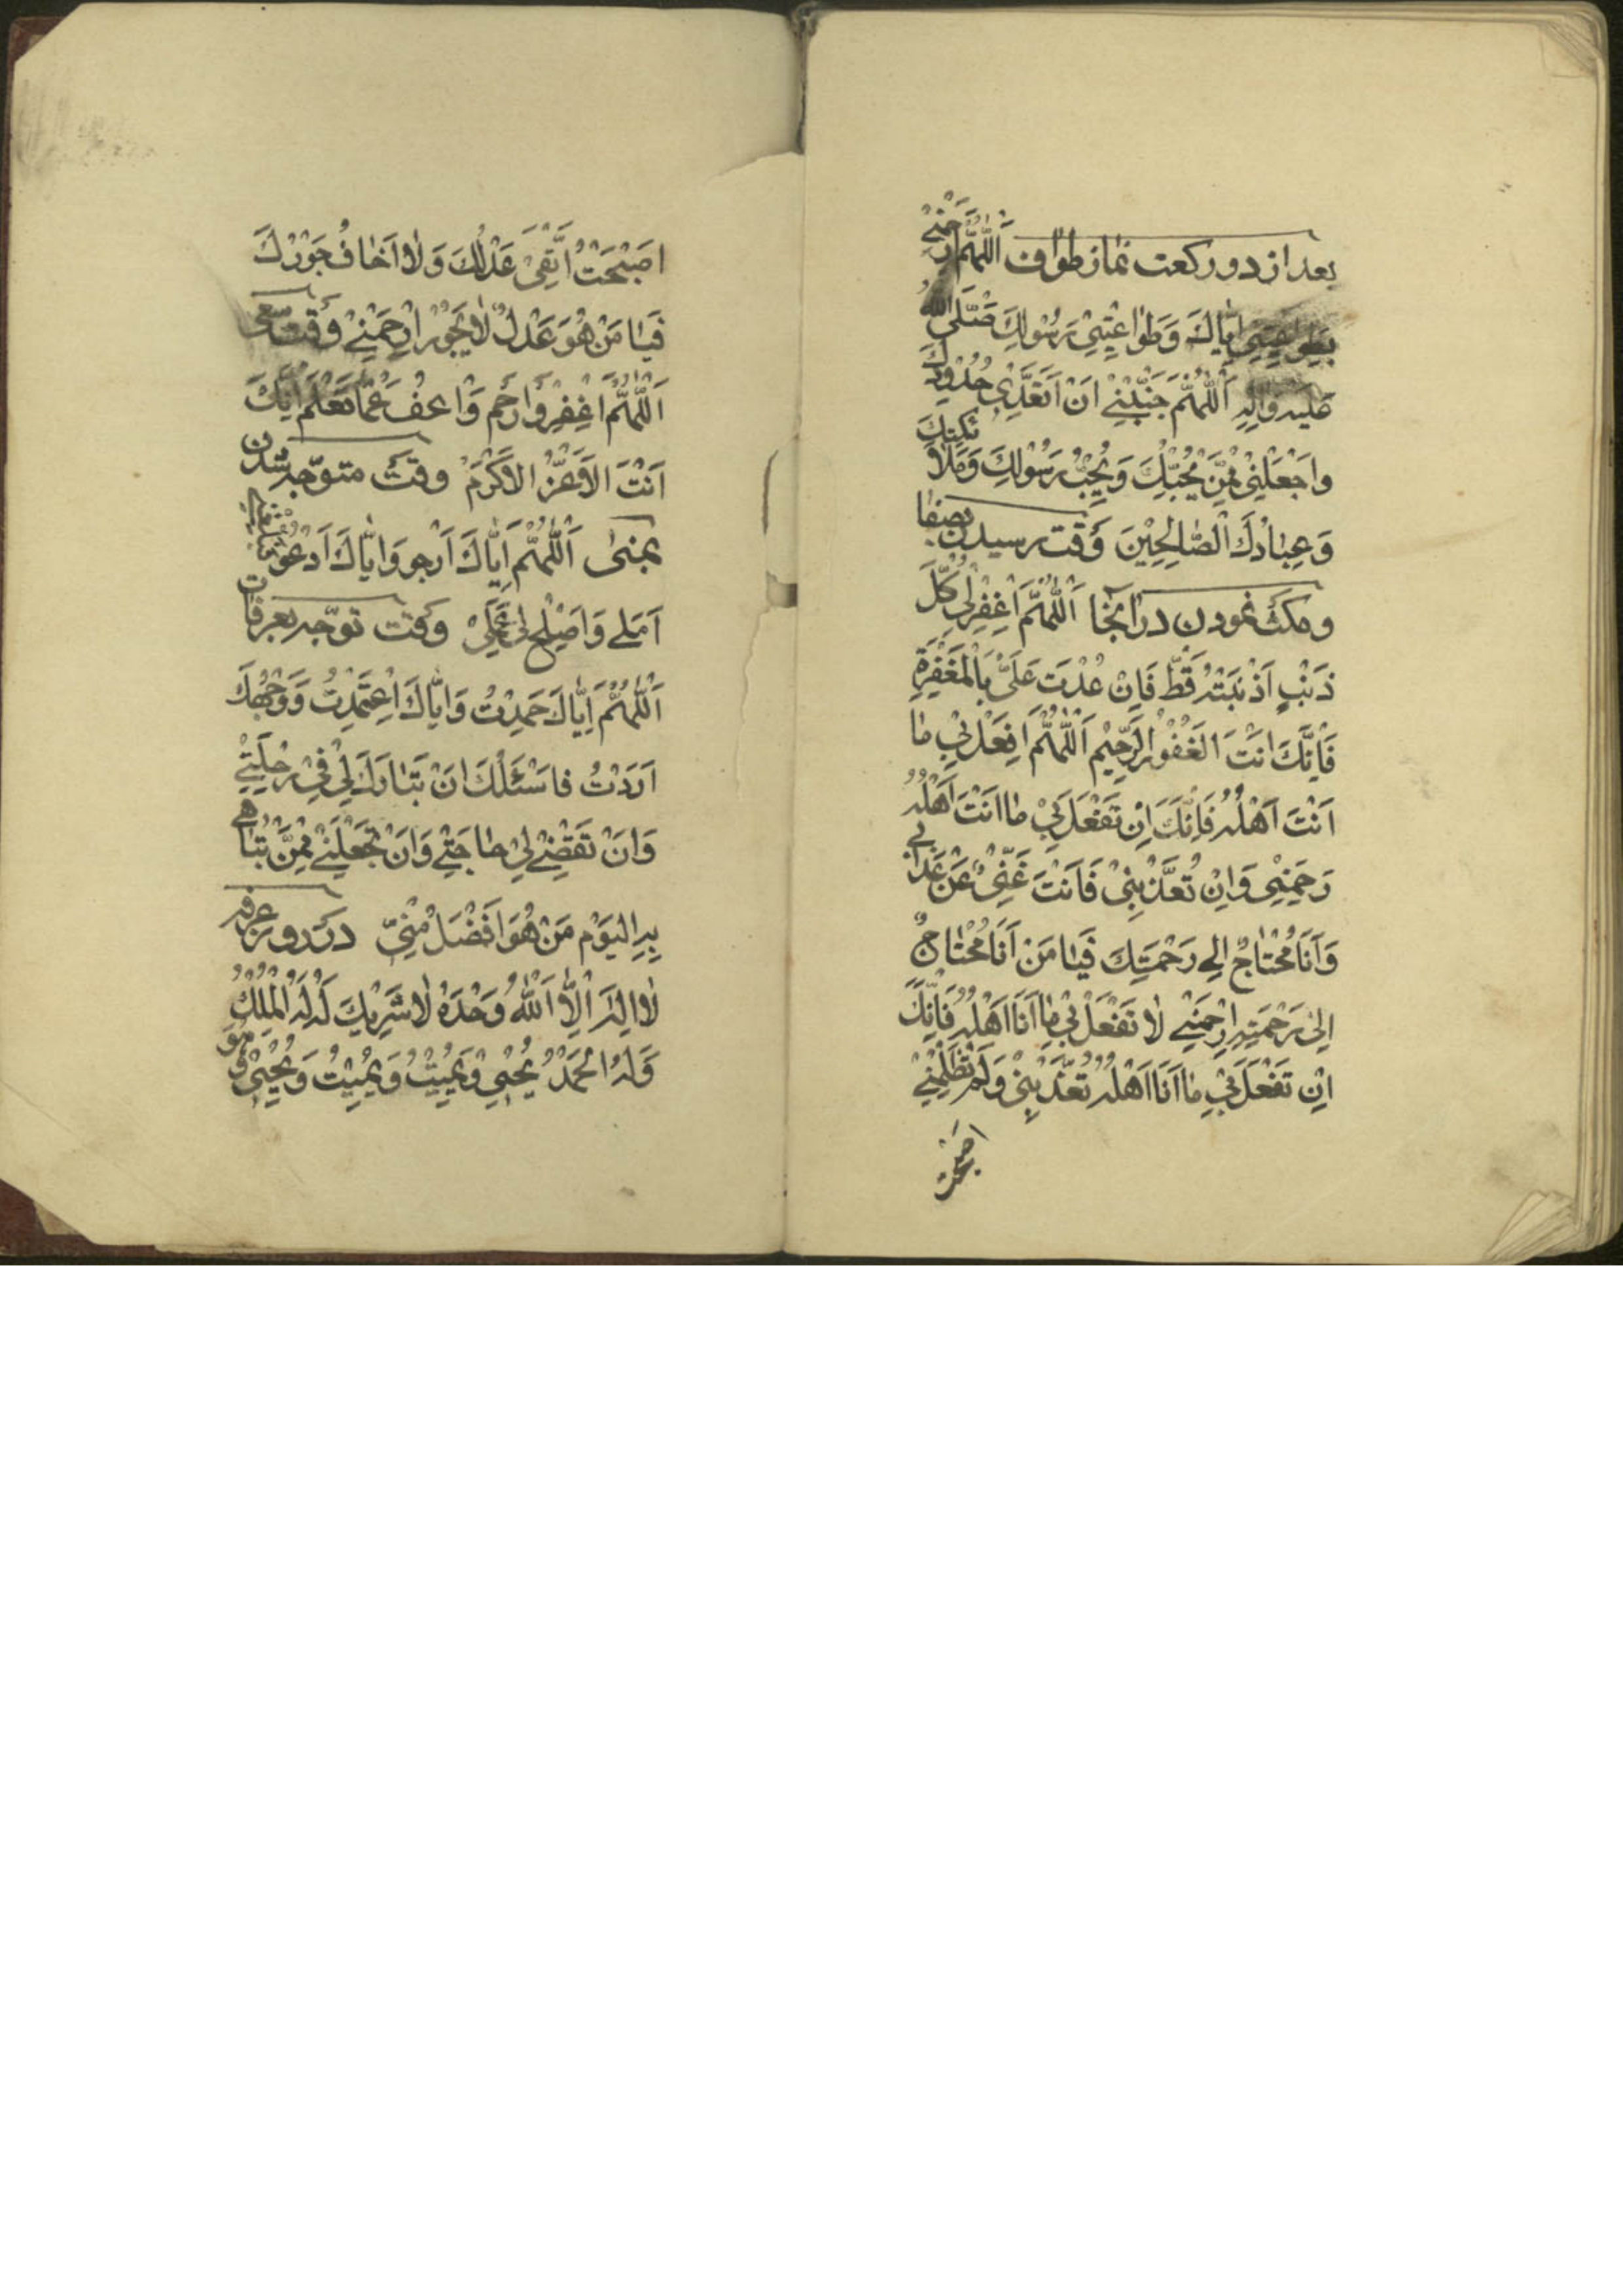 بعد از دو ركعت نماز طواف اَللّهُمَّ ارْحَمْنِي
بِطَواعِيَتِي اِيّاكَ وَطَواعِيَتِي رَسُولِكَ صَلَّى اللهُ
عليه واله اَللّهُمَّ جَنِّبْنِي اَنْ اَتَعَدّى حُدُودَكَ
وَاجْعَلْنِي مِمَّنْ يُحِبُّكَ وَيُحِبُّ رَسُولَكَ وَمَلائِكَتِكَ
وَعِبادَكَ الصّالِحِيْنَ وَقت رسيدن بصفا
و مكث نمودن در انجا اَللّهُمَّ اغْفِرْ لِي كُلَّ
ذَنْبٍ اَذْنَبْتُهُ قَطُّ فَاِنْ عُدْتُ عَلَيَّ بِالْمَغْفِرَةِ
فَاِنَّكَ اَنْتَ الغَفُوْرُ الرَّحِيْمِ اَللّهُمَّ افْعَلْ بِي ما
اَنْتَ اَهْلُهُ فَاِنَّكَ اِنْ تَفْعَلْ بِيْ ما اَنْتَ اَهْلُهُ
رَحِمْتِنِي وَاِنْ تُعَذِّبْنِيْ فَاَنْتَ غَنِيٌّ عَنْ عَذابِي
وَاَنَا مُحْتاجٌ اِلى رَحْمَتِكَ فَيا مَنْ اَنَا مُحْتاجٌ
اِلى رَحْمَتِهِ ارْحَمْنِي لا تَفْعَلْ بِيْ ما اَنَا اَهْلُهُ فَاِنَّكَ
اِنْ تَفْعَلْ بِيْ ما اَنَا اَهْلُهُ تُعَذِّبْنِيْ وَلَمْ تَظْلِمْنِيْ
اصبحت
اصْبَحْتُ اَتَّقِيْ عَدْلَكَ وَلا اَخافُ جَوْرَكَ
فَيا مَنْ هُوَ عَدْلٌ لا يَجُوْرُ ارْحَمْنِيْ وَقت سعى
اَللّهُمَّ اغْفِرْ وَارْحَم وَاعفُ عَمّا تَعْلَمُ اِنَّكَ
اَنْتَ الاَعَزُّ الاَكْرَمُ وقت متوجّه شدن
بمنى اَللّهُمَّ اِيّاكَ اَرْجو وَاِيّاكَ اَدْعُو فبلغنى
اَمَلي وَاَصْلِحْ لِي عَمَلِيْ وَقت توجّه بعرفات
اَللّهُمَّ اِيّاكَ حَمِدْتُ وَاِيّاكَ اعْتَمَدْتُ وَوَجْهَكَ
اَرَدْتُ فاسْئَلُكَ اَنْ تَبارَكَ لِي فِيْ رِحْلَتِيْ
وَاَنْ تَقْضِيَ لِي حاجَتِي وَاَنْ تَجْعَلَنِي مِمَّنْ تُباهي
بِهِ اليَوْم مَنْ هُوَ اَفْضَلُ مِنِّيْ در روز عرفه
لا اِلهَ اِلاَّ اللهُ وَحْدَهُ لا شَرِيْكَ لَهُ لَهُ الْمُلْكُ
وَلَهُ الْحَمْدُ يُحْيِي وَيُمِيْتُ وَيُمِيْتُ وَيُحْيِيْ وَهُوَ